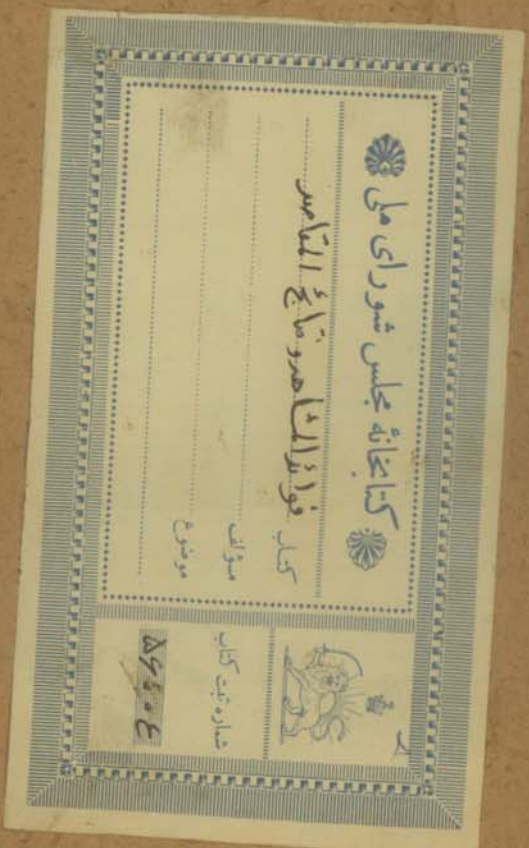 کتابخانهٔ مجلس شورای ملی
کتاب فوائد المشاهد و نتائج المقاصد
مؤلف
موضوع
شماره ثبت کتاب